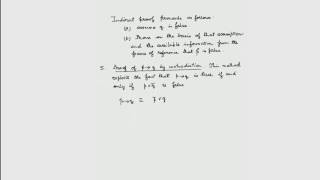 Indirect proof proceeds as follows
(a) assume q is false
(b) Prove on the basis of that assumption
and the available information from the
frame of reference that p is false
5. Proof of p→q by contradiction This method
exploits the fact that p→q is true if and
only if p∧q̅ is false
p→q ≡ p̅∨q